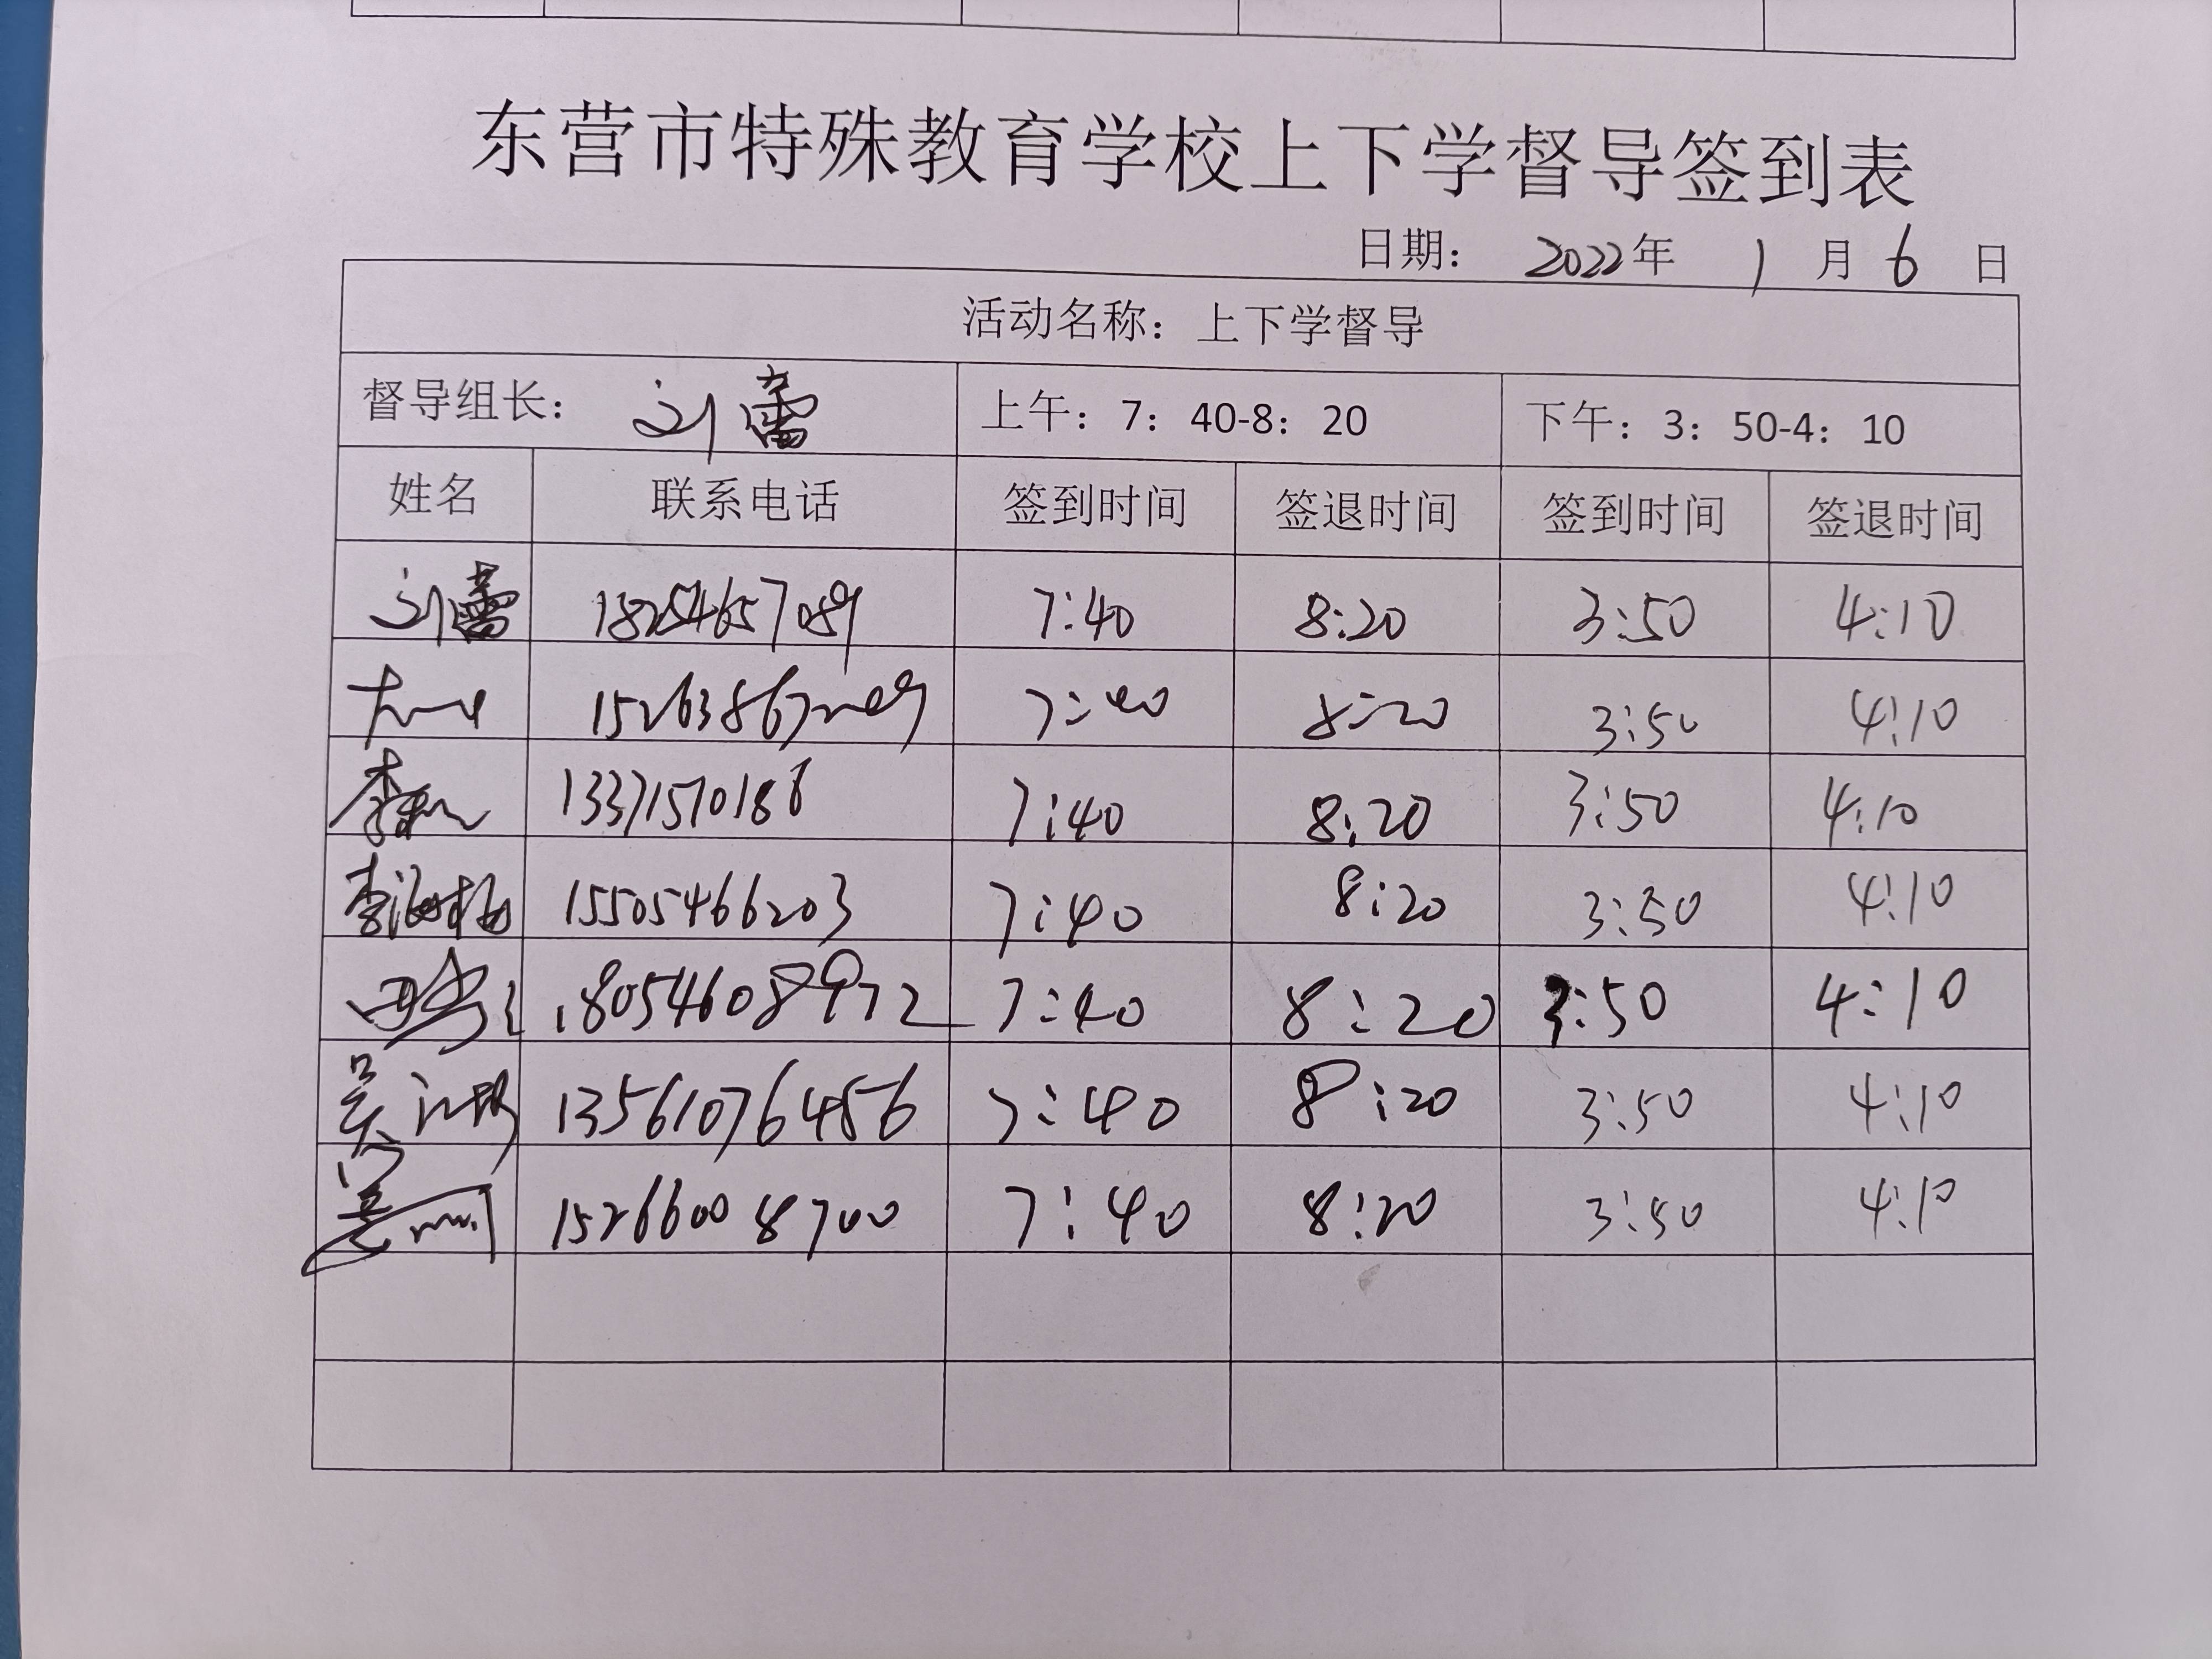 东营市特殊教育学校上下学督导签到表
日期： 2022年 1 月 6 日
活动名称：上下学督导
督导组长： 刘蕾 上午：7：40-8：20 下午：3：50-4：10
姓名 联系电话 签到时间 签退时间 签到时间 签退时间
刘蕾 18254657089 7:40 8:20 3:50 4:10
7:40 8:20 3:50 4:10
李 13371570186 7:40 8:20 3:50 4:10
李海梅 15505466203 7:40 8:20 3:50 4:10
18054608972 7:40 8:20 3:50 4:10
吴 13561076456 7:40 8:20 3:50 4:10
15266008700 7:40 8:20 3:50 4:10